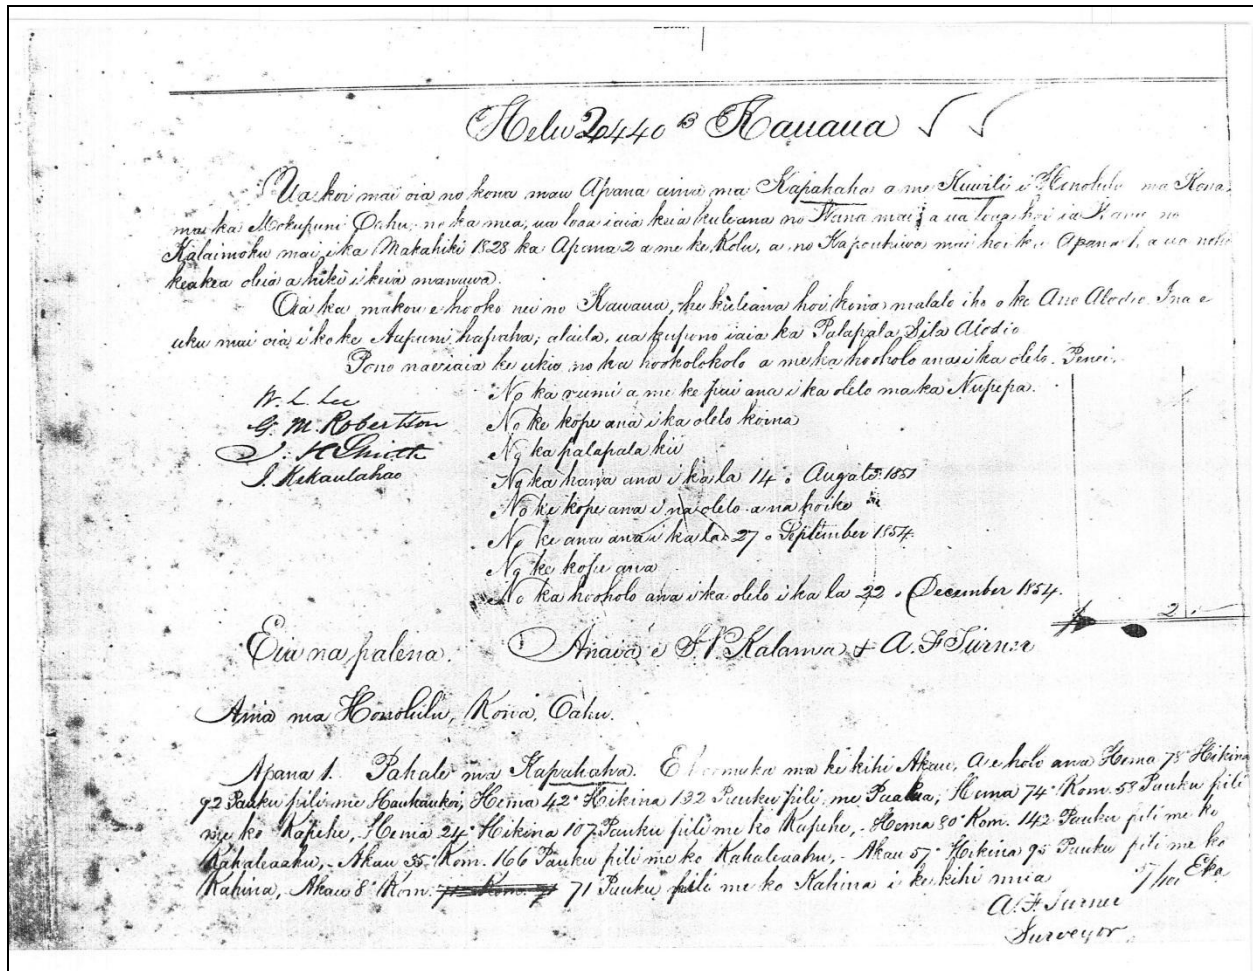 Helu 2440 B Kauaua
Ua koi mai oia no kona mau Apana aina ma Kapahaha a me Kuwili i Honolulu ma Kona
ma ka Mokupuni Oahu no ka mea, ua loaa iaia keia kuleana no Nana mai, a ua loaa hoi ia Nana no
Kalaimoku mai i ka Makahiki 1828 ka Apana 2 a me ke Kolu, a no Kapouhiwa mai hoi ka Apana 1, a ua noho
keakea oleia a hiki i keia manawa.
Oia ka makou e hooko nei no Kauaua, he kuleana hoi kona malalo iho o ke Ano Alodio. Ina e
uku mai oia i ko ke Aupuni hapaha, alaila, ua kupono iaia ka Palapala Sila Alodio
Pono na iaia ke uku no ka hookolokolo a me ka hooholo ana i ka olelo. Penei.
W. L. Lee
G. M. Robertson
J. H. Smith
J. Kekaulahao
No ka rumi a me ke pai ana i ka olelo ma ka Nupepa.
No ke kope ana i ka olelo koina
No ka palapala kii
No ka hana ana i ka la 14 o Augate 1851
No ke kope ana i na olelo a na hoike
No ke ana ana i ka la 27 o September 1854
No ke kope ana
No ka hooholo ana i ka olelo i ka la 22 o December 1854.
2
Eia na palena. Anaia e J. W. Kalama & A. F. Turner
Aina ma Honolulu, Kona, Oahu.
Apana 1. Pahale ma Kapahaha. E hoomaka ma ke kihi Akau, A e holo ana Hema 78° Hikina
92 Pauku pili me Haukaukoi, Hema 42° Hikina 132 Pauku pili me Paalua, Hema 74° Kom. 58 Pauku pili
me ko Kapehe, Hema 24° Hikina 107 Pauku pili me ko Kapehe, - Hema 80° Kom. 142 Pauku pili me ko
Kahaleaahu, - Akau 35° Kom. 166 Pauku pili me ko Kahaleaahu, - Akau 57° Hikina 95 Pauku pili me ko
Kahina, Akau 8° Kom. 71 Pauku pili me ko Kahina i ke kihi mua Eka
A. F. Turner
Surveyor